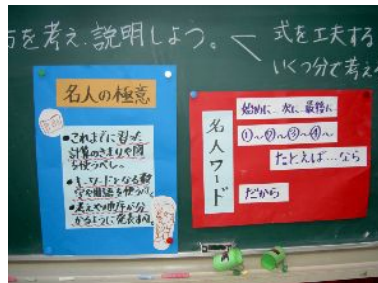 方を考え、説明しよう。
式を工夫する
いくつ分で考え
名人の極意
●これまでに習った
計算のきまりや図
を使うべし。
●キーワードとなる数
字や用語を使うべし。
●考えや地庁が分
かるように発表すべし。
名人ワード
始めに…次に…最後に
①～②～③～④～
たとえば…なら
だから